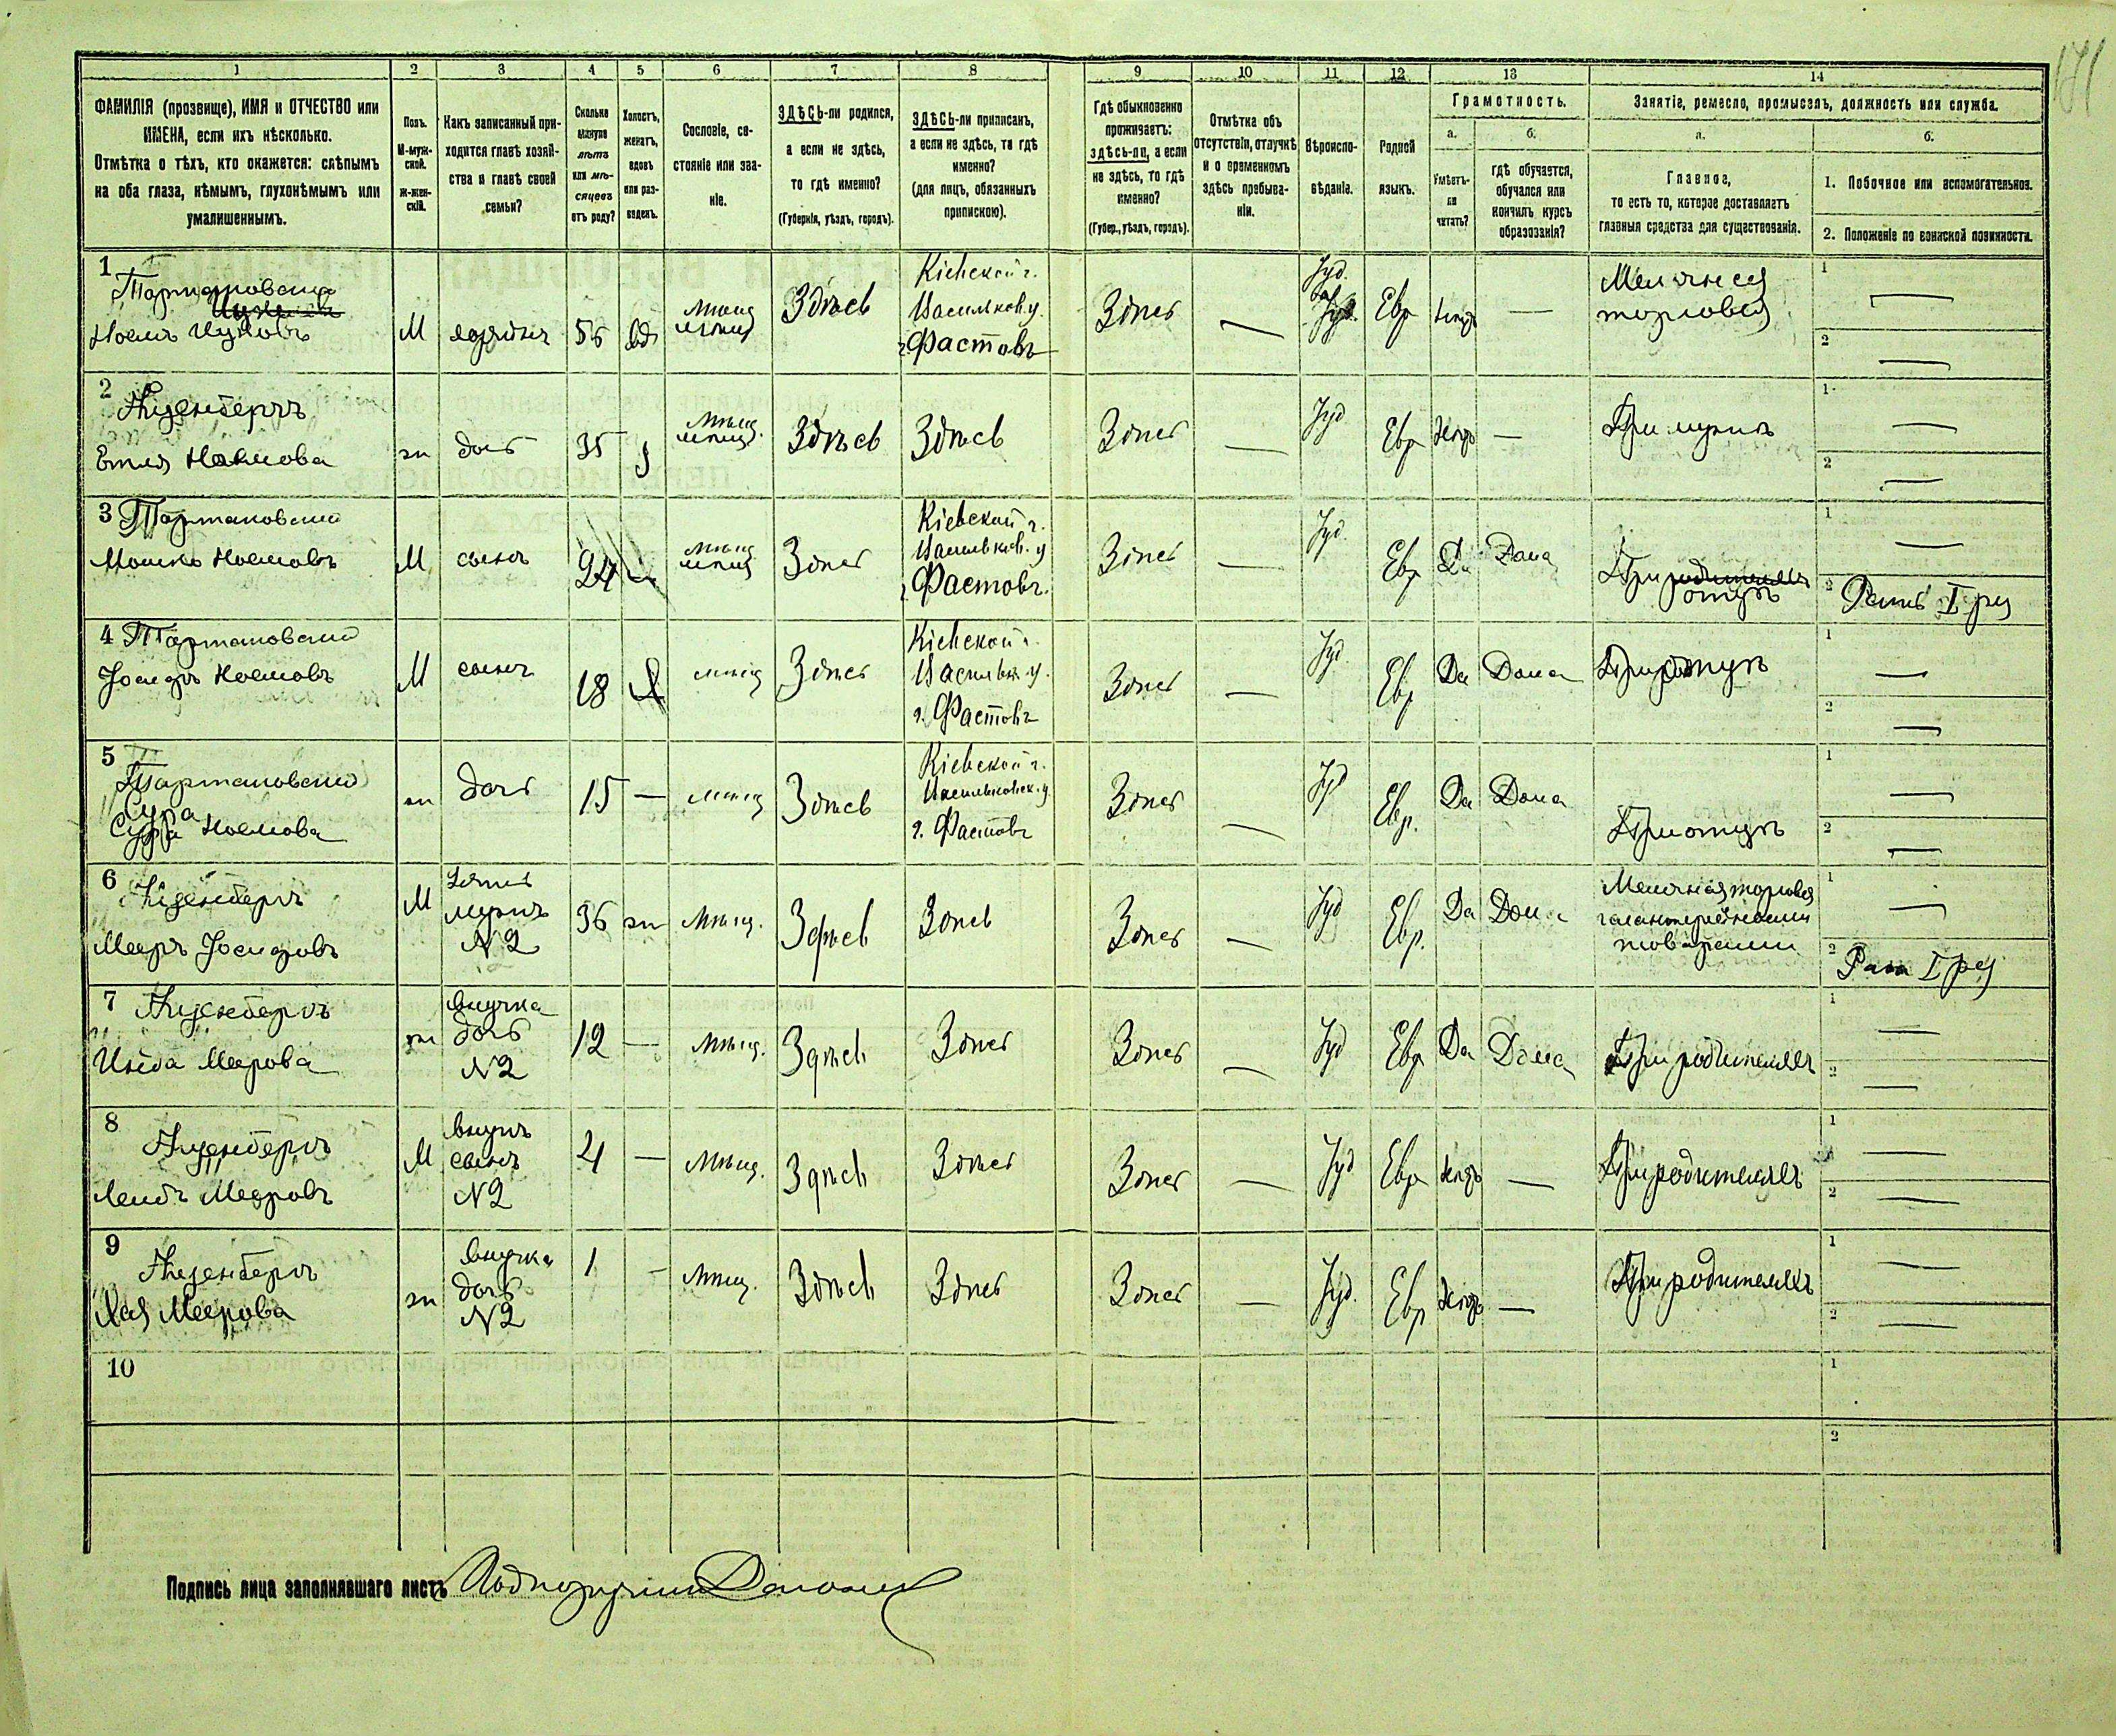 171
1 2 3 4 5 6 7 8 9 10 11 12 13 14
ФАМИЛІЯ (прозвище), ИМЯ и ОТЧЕСТВО или
ИМЕНА, если ихъ нѣсколько.
Отмѣтка о тѣхъ, кто окажется: слѣпымъ
на оба глаза, нѣмымъ, глухонѣмымъ или
умалишеннымъ.
Полъ.
М-муж-
ской.
Ж-жен-
скій.
Какъ записанный при-
ходится главѣ хозяй-
ства и главѣ своей
семьи?
Сколько
минуло
лѣтъ
или мѣ-
сяцевъ
отъ роду?
Холостъ,
женатъ,
вдовъ
или раз-
веденъ.
Сословіе, со-
стояніе или зва-
ніе.
ЗДѢСЬ-ли родился,
а если не здѣсь,
то гдѣ именно?
(Губернія, уѣздъ, городъ).
ЗДѢСЬ-ли приписанъ,
а если не здѣсь, то гдѣ
именно?
(для лицъ, обязанныхъ
припискою).
Гдѣ обыкновенно
проживаетъ:
здѣсь-ли, а если
не здѣсь, то гдѣ
именно?
(Губер., уѣздъ, городъ).
Отмѣтка объ
отсутствіи, отлучкѣ
и о временномъ
здѣсь пребыва-
ніи.
Вѣроиспо-
вѣданіе.
Родной
языкъ.
Грамотность.
а.
Умѣетъ-
ли
читать?
б.
гдѣ обучается,
обучался или
кончилъ курсъ
образованія?
Занятіе, ремесло, промыселъ, должность или служба.
а.
Главное,
то есть то, которое доставляетъ
главныя средства для существованія.
б.
1. Побочное или вспомогательное.
2. Положеніе по воинской повинности.
1
Тартаковский
Ноемъ Ицковъ
М
хозяинъ
56
вд
мѣщ
Здѣсь
Кіевской г.
Васильков. у.
г. Фастовъ
Здѣсь
—
Іуд.
Евр
Нѣтъ
—
Мелочная
торговля
1 —
2 —
2
Айзенбергъ
Етля Ноемова
ж
дочь
35
з
мѣщ.
Здѣсь
Здѣсь
Здѣсь
—
Іуд
Евр
Нѣтъ
—
При мужѣ
1 —
2 —
3 Тартаковский
Мошко Ноемовъ
М
сынъ
24
мѣщ
Здѣсь
Кіевской г.
Васильков. у
г. Фастовъ.
Здѣсь
—
Іуд.
Евр
Да
Дома
При родителяхъ
отцѣ
1 —
2 Ратн I ря
4 Тартаковский
Іосифъ Ноемовъ
М
сынъ
18
Х
мѣщ
Здѣсь
Кіевской г.
Васильк. у.
г. Фастовъ
Здѣсь
—
Іуд.
Евр
Да
Дома
При отцѣ
1 —
2 —
5
Тартаковский
Сура
Сура Ноемова
ж
дочь
15
—
мѣщ
Здѣсь
Кіевской г.
Васильковск. у
г. Фастовъ
Здѣсь
—
Іуд
Евр.
Да
Дома
При отцѣ
1 —
2 —
6
Айзенбергъ
Мееръ Іосифовъ
М
Зять
мужъ
N2
36
ж
мѣщ.
Здѣсь
Здѣсь
Здѣсь
—
Іуд
Евр.
Да
Дома
Мелочная торговля
галантерейными
товарами
1 —
2 Ратн I ря
7 Айзенбергъ
Меерова
ж
внучка
дочь
N2
12
—
мѣщ.
Здѣсь
Здѣсь
Здѣсь
—
Іуд
Евр
Да
Дома
При родителяхъ
1 —
2 —
8
Айзенбергъ
Лейбъ Мееровъ
М
внукъ
сынъ
N2
4
—
мѣщ.
Здѣсь
Здѣсь
Здѣсь
—
Іуд
Евр
Нѣтъ
—
При родителяхъ
1 —
2 —
9
Айзенбергъ
Хая Меерова
ж
внучка
дочь
N2
1
—
мѣщ.
Здѣсь
Здѣсь
Здѣсь
—
Іуд.
Евр
Нѣтъ
—
При родителяхъ
1 —
2 —
10
1
2
Подпись лица заполнявшаго листъ